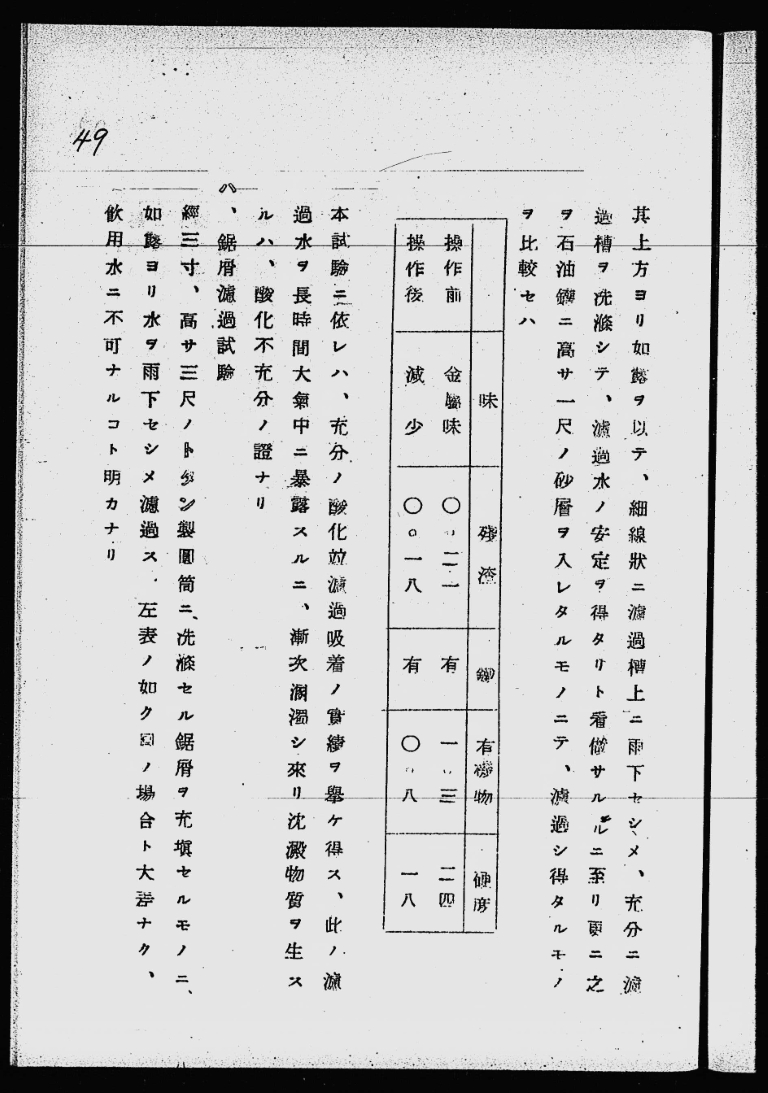 49
其上方ヨリ如露ヲ以テ、細線狀ニ濾過槽上ニ雨下セシメ、充分ニ濾
過槽ヲ洗滌シテ、濾過水ノ安定ヲ得タリト看做サルルニ至リ更ニ之
ヲ石油罐ニ高サ一尺ノ砂層ヲ入レタルモノニテ、濾過シ得タルモノ
ヲ比較セハ
味 殘渣 有機物 硬度
操作前 金屬味 〇。二一 有 一。三 二四
操作後 減少 〇。一八 有 〇。八 一八
本試驗ニ依レハ、充分ノ酸化竝濾過吸着ノ實績ヲ擧ケ得ス、此ノ濾
過水ヲ長時間大氣中ニ暴露スルニ、漸次溷濁シ來リ沈澱物質ヲ生ス
ルハ、酸化不充分ノ證ナリ
ハ、鋸屑濾過試驗
經三寸、高サ三尺ノトタン製圓筒ニ、洗滌セル鋸屑ヲ充塡セルモノニ、
如露ヨリ水ヲ雨下セシメ濾過ス、左表ノ如ク ノ場合ト大差ナク、
飮用水ニ不可ナルコト明カナリ